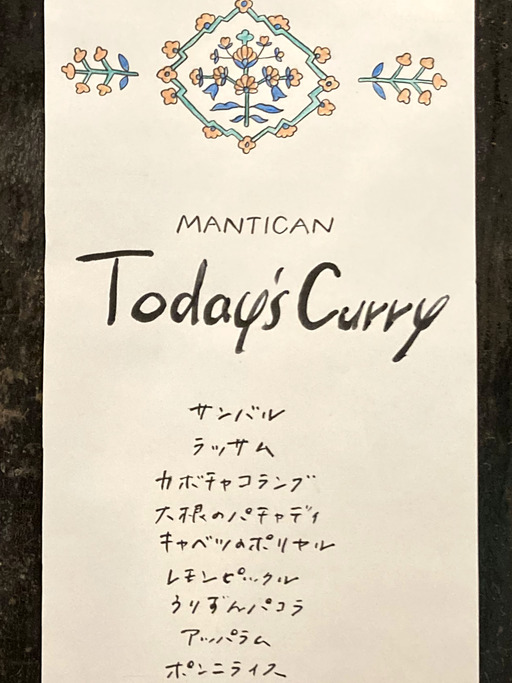 MANTICAN
Today's Curry
サンバル
ラッサム
カボチャコランブ
大根のパチャディ
キャベツのポリヤル
レモンピックル
うりずんパコラ
アッパラム
ポンニライス